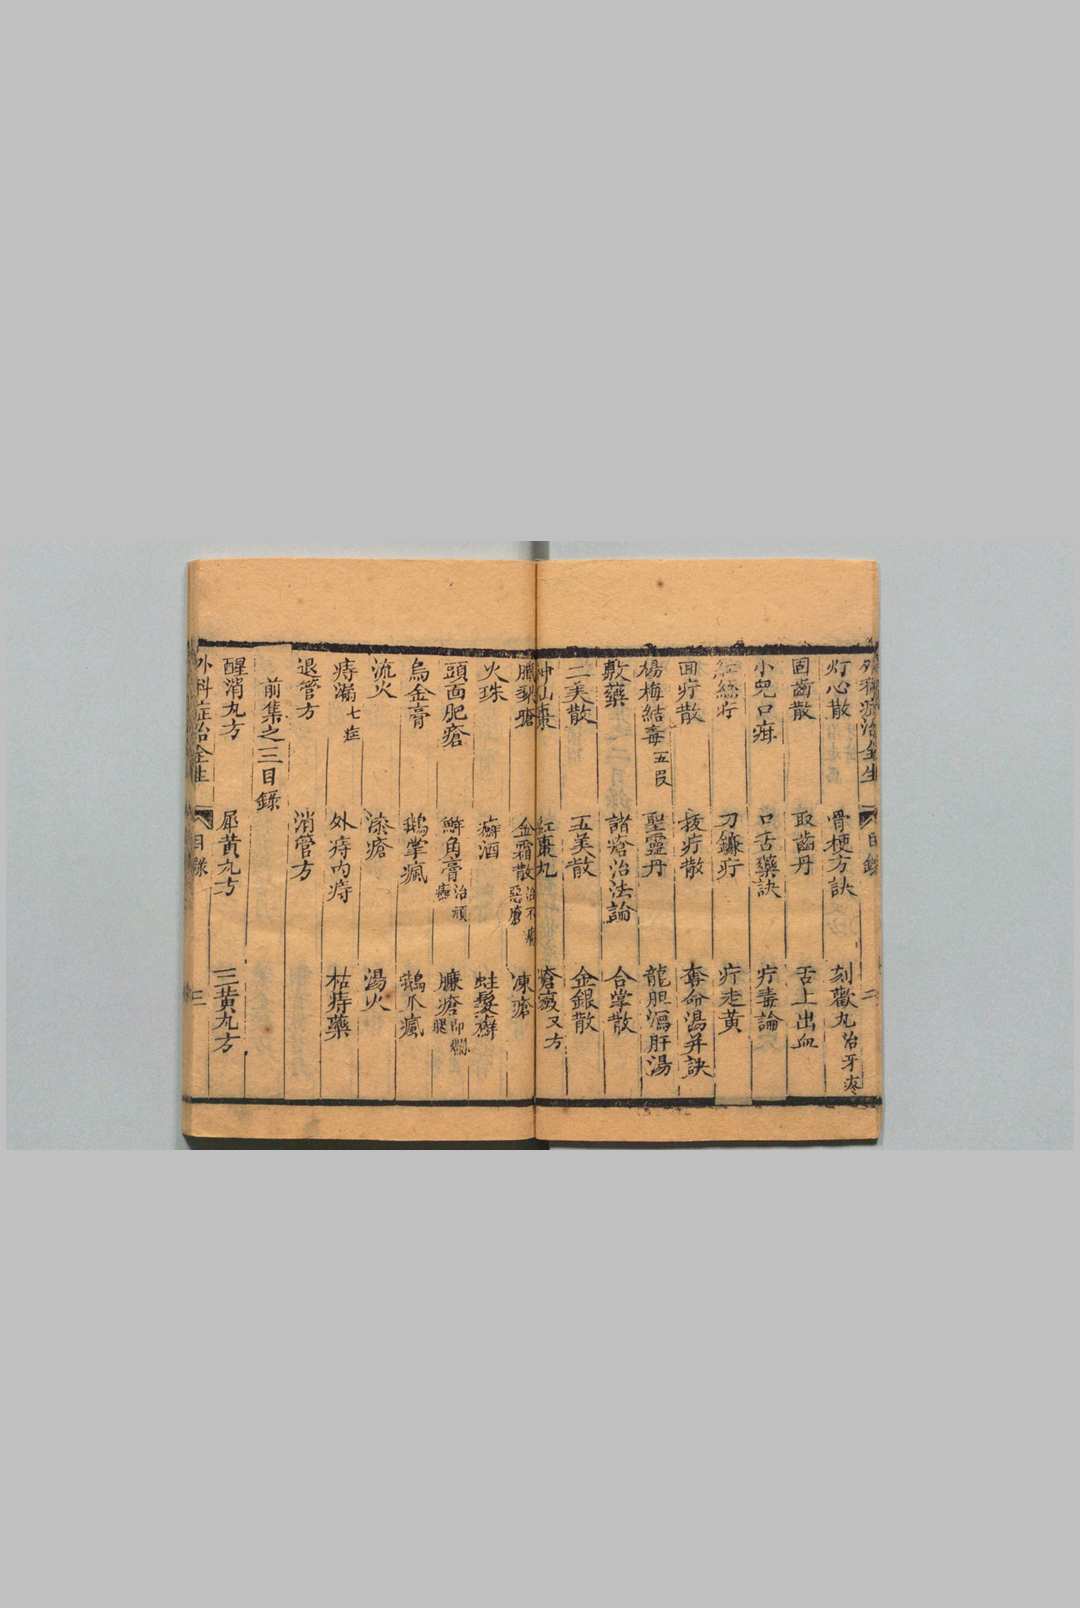 外科症治全生 目錄 二
灯心散 骨梗方訣 刻歡丸治牙疼
固齒散 取齒丹 舌上出血
小兒口疳 口舌藥訣 疔毒論
紅絲疔 刀鐮疔 疔走黃
回疔散 拔疔散 奪命湯并訣
楊梅結毒五叚 聖靈丹 龍胆瀉肝湯
敷藥 諸瘡治法論 合掌散
二美散 五美散 金銀散
紅棗丸 瘡藥又方
臘梨瘡 金霜散治不痛惡瘡 凍瘡
火珠 癬酒 蛀髮癬
頭面肥瘡 觧角膏治頑癬 臁瘡即爛腿
烏金膏 鵝掌瘋 鵝爪瘋
流火 漆瘡 湯火
痔漏七症 外痔內痔 枯痔藥
退管方 消管方
前集之三目錄
醒消丸方 犀黃丸方 三黃丸方
外科症治全生 目錄 三